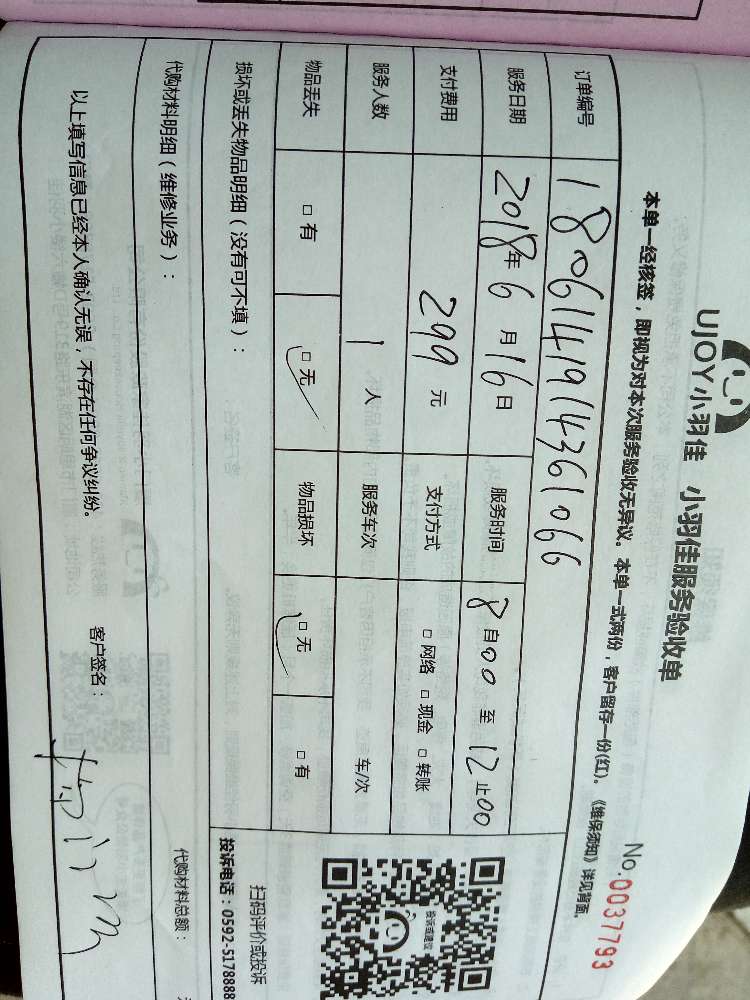 UJOY小羽佳 小羽佳服务验收单
No.0037793
本单一经核签，即视为对本次服务验收无异议。本单一式两份，客户留存一份(红)。《维保须知》详见背面。
订单编号 180614191436 1066
服务日期 2018年6月16日 服务时间 8自00至12止00
支付费用 299元 支付方式 □网络 □现金 □转账
服务人数 1人 服务车次 车/次
物品丢失 □有 □无 物品损坏 □无 □有
损坏或丢失物品明细（没有可不填）：
投诉或建议
扫码评价或投诉
投诉电话：0592-5178888
代购材料明细（维修业务）：
代购材料总额：
以上填写信息已经本人确认无误，不存在任何争议纠纷。
客户签名：